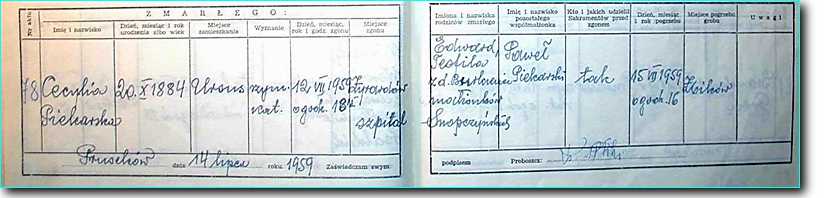 ZMARŁEGO:
Nr aktu
Imię i nazwisko
Dzień, miesiąc i rok urodzenia albo wiek
Miejsce zamieszkania
Wyznanie
Dzień, miesiąc, rok i godz. zgonu
Miejsce zgonu
Imiona i nazwisko rodziców zmarłego
Imię i nazwisko pozostałego współmałżonka
Kto i jakich udzielił Sakramentów przed zgonem
Dzień, miesiąc i rok pogrzebu
Miejsce pogrzebu grobu
Uwagi
78
Cecylia
Piekarska
20.X 1884
Ursus
rzym.
kat.
12. VII 1959
o godz. 18
Żyrardów
szpital
Edward,
Teofila
z d.
małżonków
Snopczyńskich
Paweł
Piekarski
tak
15 VII 1959
o godz. 16
Żbików
Pruszków dnia 14 lipca roku 1959 Zaświadczam swym
podpisem Proboszcz: